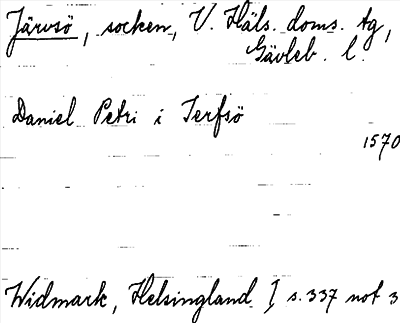 Järvsö, socken, V. Häls. doms. tg,
Gävleb. l.
Daniel Petri i Jerfsö
1570
Widmark, Helsingland I s. 337 not 3